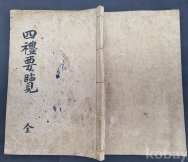 四禮要覽
全
kobay